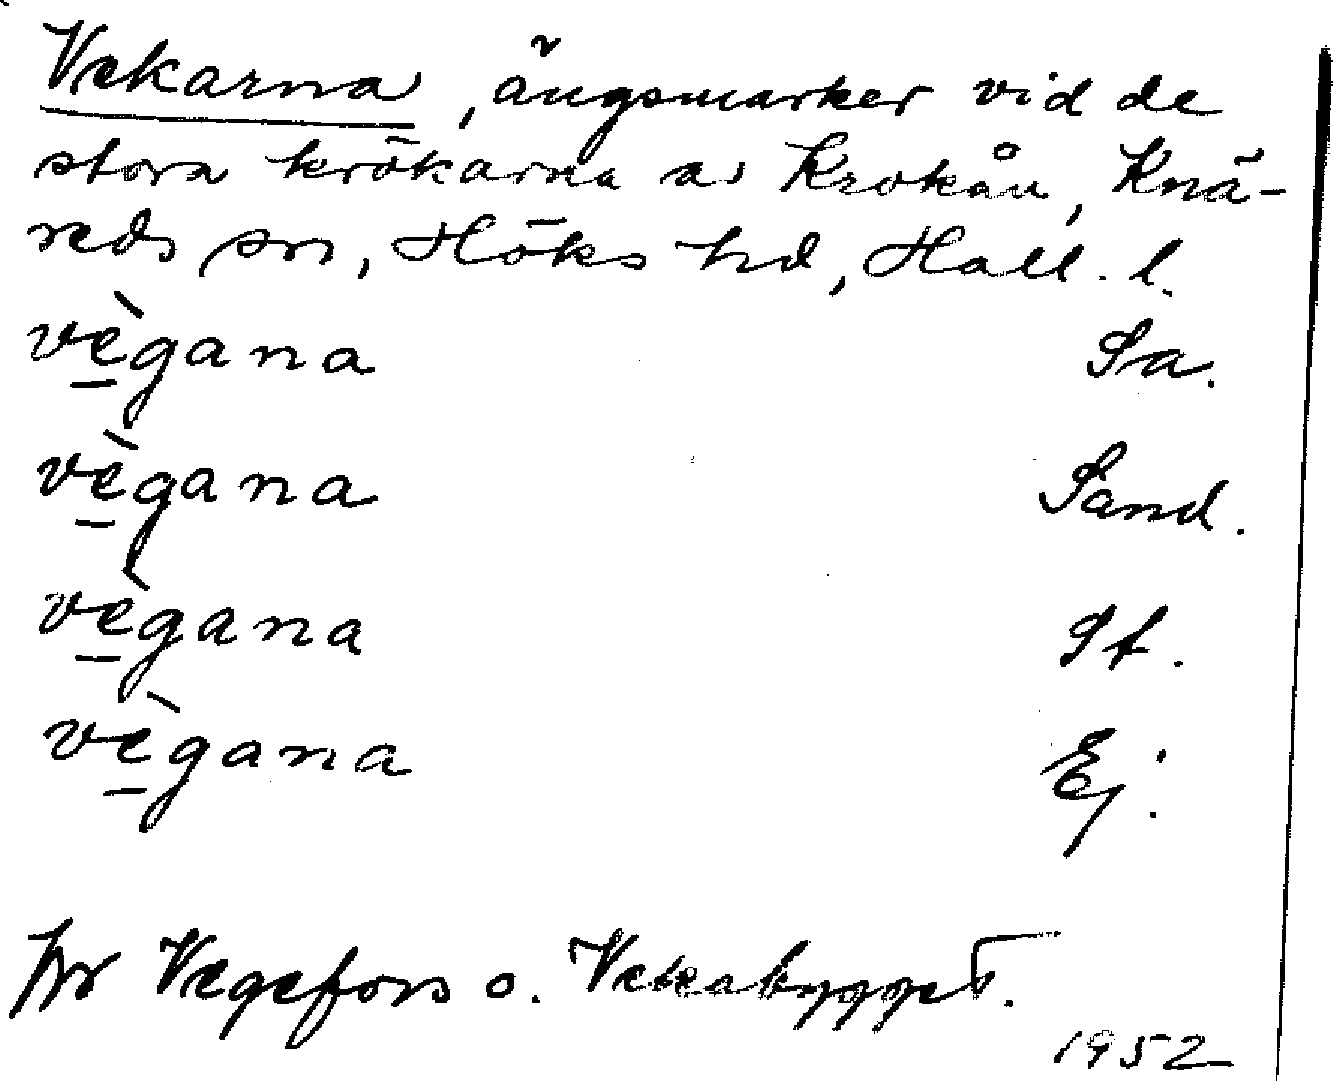 Vekarna, ängsmarker vid de
stora krökarna av Krokån, Knä-
reds sn, Höks hd, Hall. l.
vègana Sa.
vègana Sand.
vègana St.
vègana Ej.
Jfr Vegefors o. Vekabygget.
1952